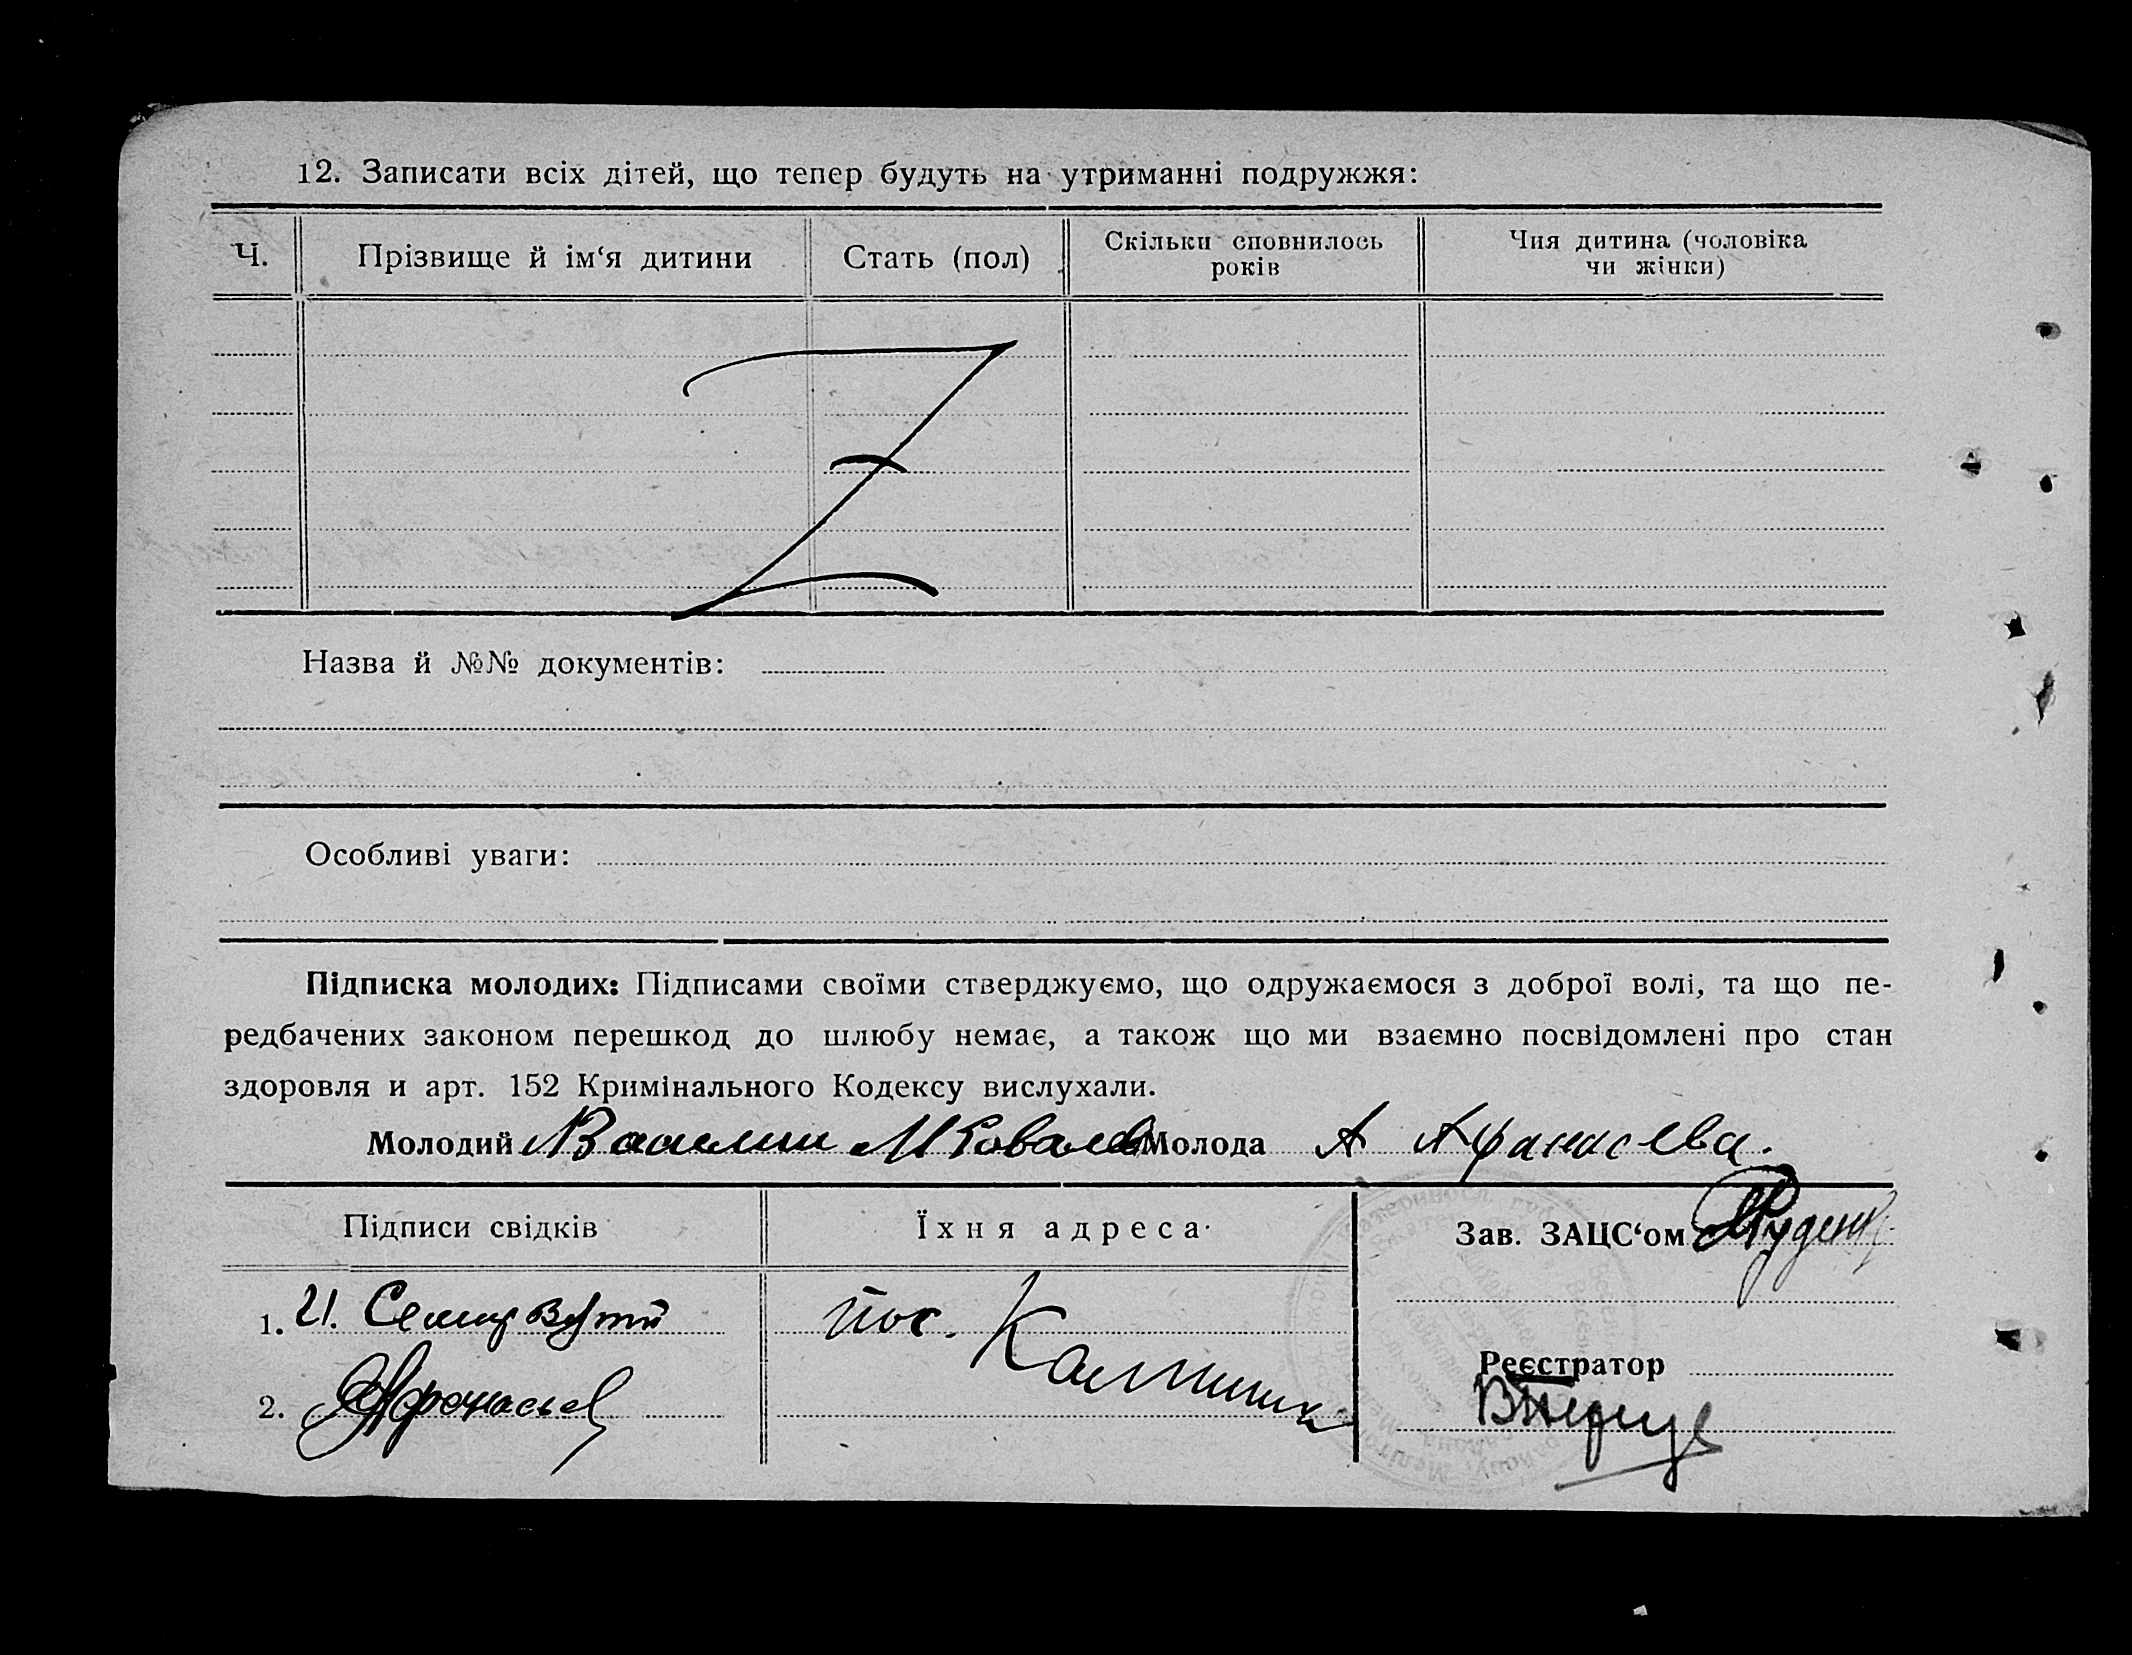 12. Записати всіх дітей, що тепер будуть на утриманні подружжя:
Ч. Прізвище й ім‘я дитини Стать (пол) Скільки сповнилось років Чия дитина (чоловіка чи жінки)
Назва й №№ документів:
Особливі уваги:
Підписка молодих: Підписами своїми стверджуємо, що одружаємося з доброї волі, та що пе-
редбачених законом перешкод до шлюбу немає, а також що ми взаємно посвідомлені про стан
здоровля и арт. 152 Кримінального Кодексу вислухали.
Молодий Молода А Афанасева.
Підписи свідків Їхня адреса Зав. ЗАЦС‘ом
1. И. пос.
Реєстратор
2. Афонасьев